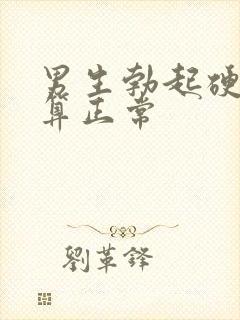 男生勃起硬
算正常
劉革鋒